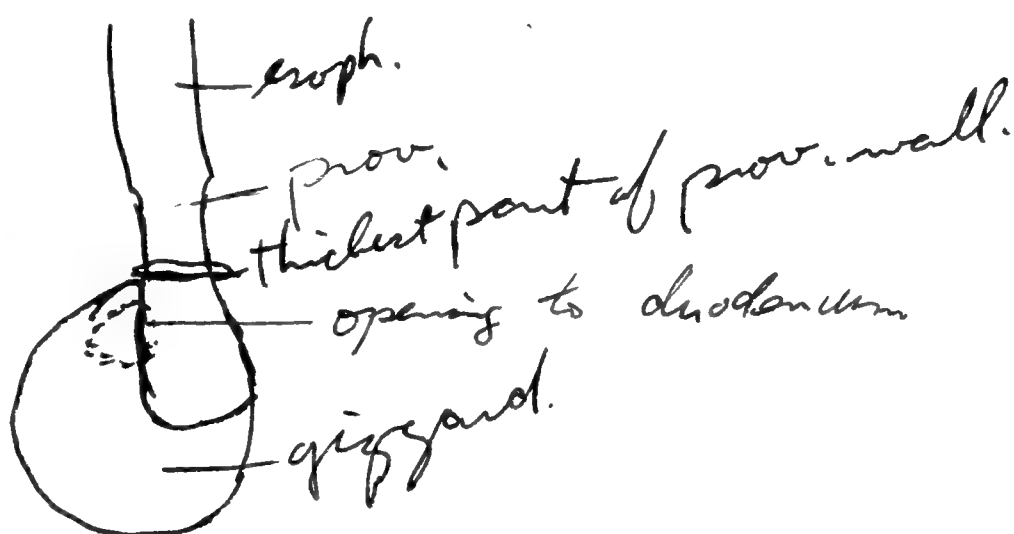 esoph.
prov.
thickest part of prov. wall.
opening to duodenum
gizzard.